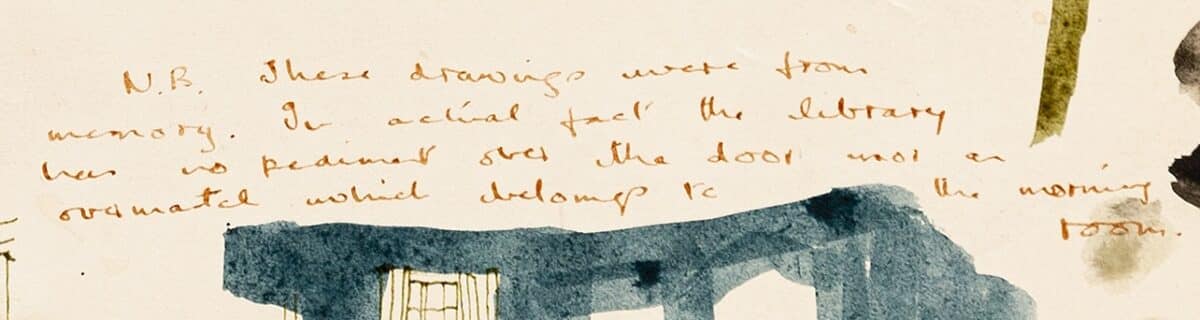 N.B. These drawings were from
memory. In actual fact the library
has no pediment over the door nor an
overmantel which belongs to the morning
room.